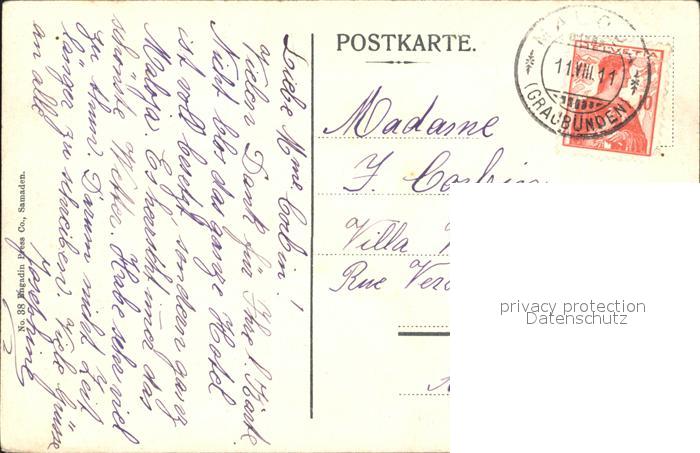 Liebe Mme Corbin!
Vielen Dank für Ihre l. Karte.
Nicht blos das ganze Hotel
ist voll besetzt, sondern ganz
Maloja. Es herrscht immer das
schönste Wetter. Habe sehr viel
zu thun. Darum nicht Zeit
länger zu schreiben. Viele Grüsse
an alle
Josephine
No. 38 Engadin Press Co., Samaden.
POSTKARTE.
MALOJA
11.VIII.11
(GRAUBÜNDEN)
HELVETIA
Madame
J. Corbin
Villa
Rue
privacy protection
Datenschutz